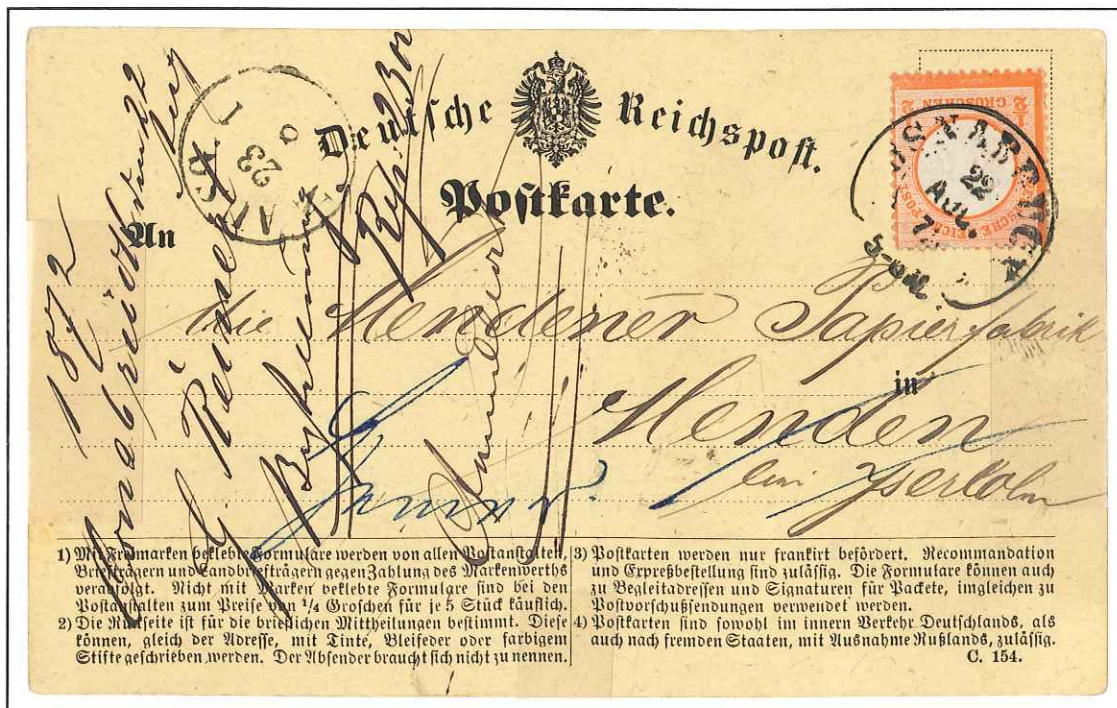 Deutsche Reichspost.
Postkarte.
1/2 GROSCHEN 1/2
OSNABRUCK
22
AUG.
5-6N
AUSG.
23
1
An
die Mendener Papierfabrik
in
Menden
bei Yserlohn
1872
Osnabrück d. 22
1) Mit Freimarken beklebte Formulare werden von allen Postanstalten,
Briefträgern und Landbriefträgern gegen Zahlung des Markenwerths
verabfolgt. Nicht mit Marken beklebte Formulare sind bei den
Postanstalten zum Preise von 1/4 Groschen für je 5 Stück käuflich.
2) Die Rückseite ist für die brieflichen Mittheilungen bestimmt. Diese
können, gleich der Adresse, mit Tinte, Bleifeder oder farbigem
Stifte geschrieben werden. Der Absender braucht sich nicht zu nennen.
3) Postkarten werden nur frankirt befördert. Recommandation
und Expreßbestellung sind zulässig. Die Formulare können auch
zu Begleitadressen und Signaturen für Packete, imgleichen zu
Postvorschußsendungen verwendet werden.
4) Postkarten sind sowohl im innern Verkehr Deutschlands, als
auch nach fremden Staaten, mit Ausnahme Rußlands, zulässig.
C. 154.